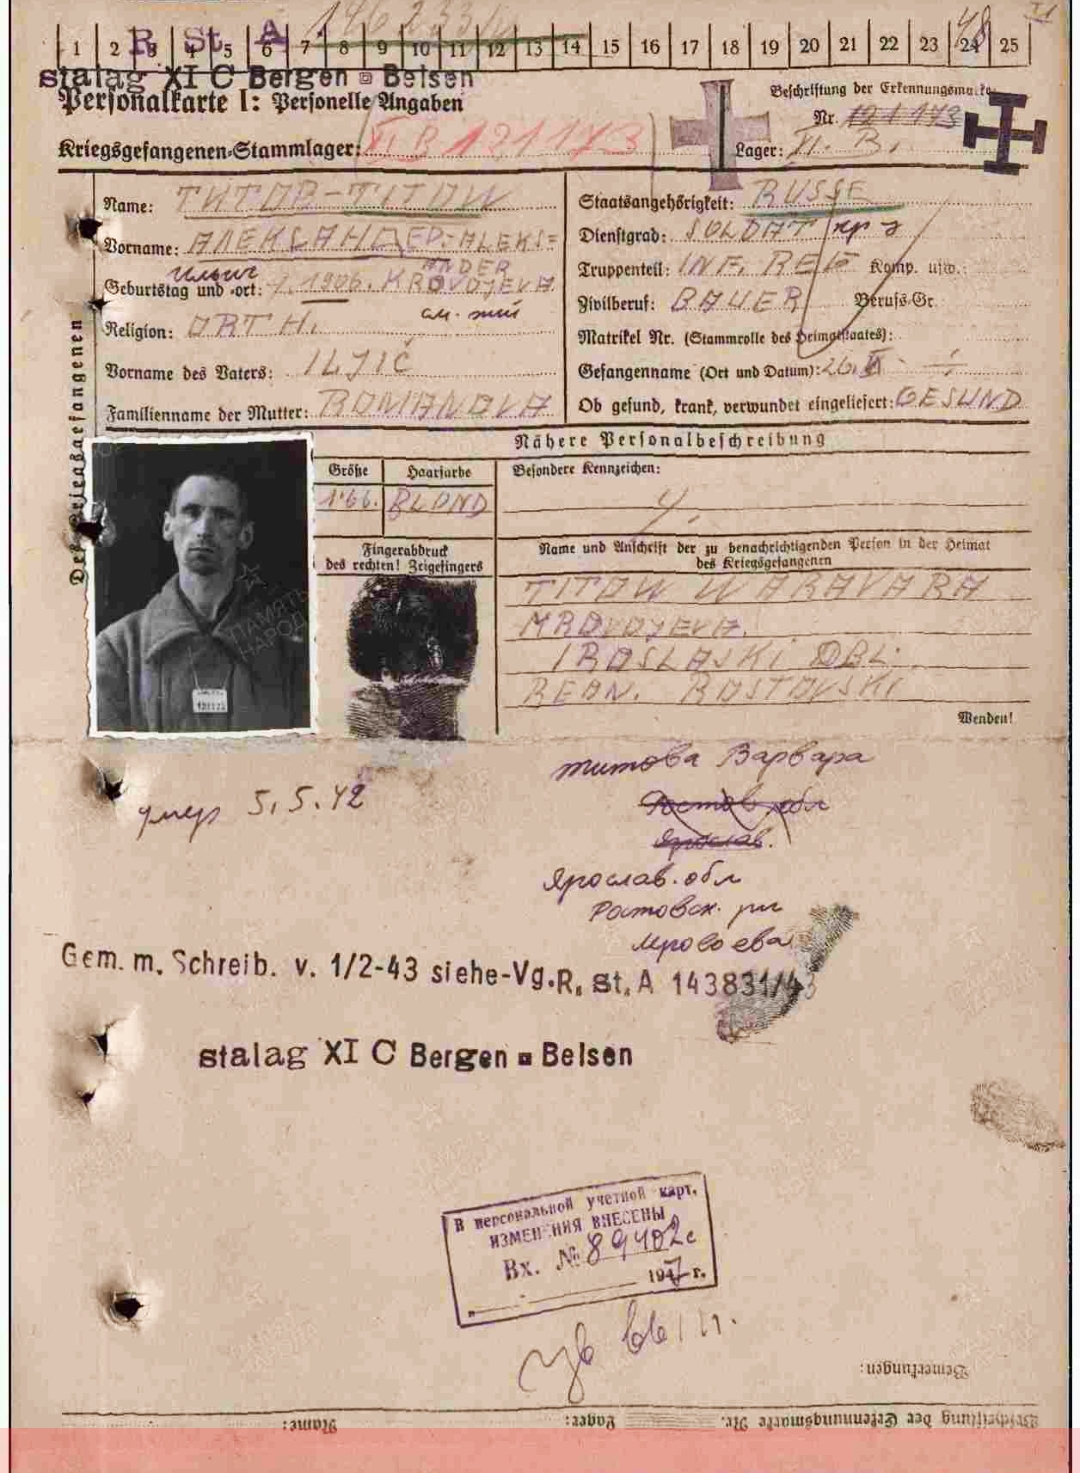 146233/
1 2 3 4 5 6 7 8 9 10 11 12 13 14 15 16 17 18 19 20 21 22 23 24 25
R. St. A.
48
stalag XI C Bergen-Belsen
Personalkarte I: Personelle Angaben
Beschriftung der Erkennungsmarke
Nr. 121173
Kriegsgefangenen-Stammlager: XI B 121173
Lager: XI. B.
Des Kriegsgefangenen
Name: ТИТОВ-TITOW
Vorname: АЛЕКСАНДЕР-ALEKS=
ANDER
Ильич
Geburtstag und -ort: 1906.
Religion: ORTH.
Vorname des Vaters: ILJIČ
Familienname der Mutter: ROMANOVA
Staatsangehörigkeit: RUSSE
Dienstgrad: SOLDAT кр-ц
Truppenteil: INF. REG Komp. usw.:
Zivilberuf: BAUER Berufs-Gr.
Matrikel Nr. (Stammrolle des Heimatstaates):
Gefangennahme (Ort und Datum): 26.
Ob gesund, krank, verwundet eingeliefert: GESUND
Nähere Personalbeschreibung
Größe Haarfarbe Besondere Kennzeichen:
1'66. BLOND
Fingerabdruck
des rechten! Zeigefingers
Name und Anschrift der zu benachrichtigenden Person in der Heimat
des Kriegsgefangenen
TITOW WARAVARA
MROVOJEVA.
IROSLASKI OBL.
REON. ROSTOVSKI
Wenden!
ПАМЯТЬ
НАРОДА
умер 5.5.42
Титова Варвара
Ростов. обл
Ярослав.
Ярослав. обл
Ростовск. рн
Мровоева
Gem. m. Schreib. v. 1/2-43 siehe-Vg.R. St. A 143831/43
stalag XI C Bergen-Belsen
В персональной учетной карт.
ИЗМЕНЕНИЯ ВНЕСЕНЫ
Вх. № 89402с
194 г.
Bemerkungen:
Name: Lager: Beschriftung der Erkennungsmarke Nr.